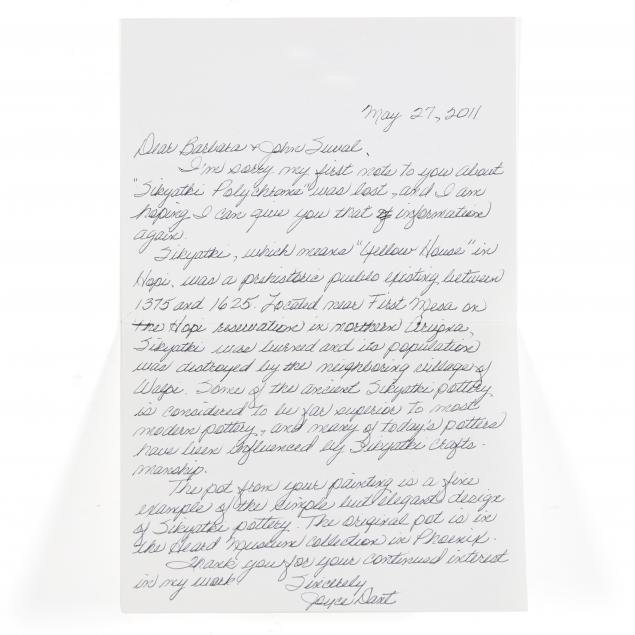 May 27, 2011
Dear Barbara & John Suval,
I'm sorry my first note to you about
"Sikyatki Polychrome" was lost, and I am
hoping I can give you that information
again.
Sikyatki, which means "Yellow House" in
Hopi, was a prehistoric pueblo existing between
1375 and 1625. Located near First Mesa on
the Hopi reservation in northern Arizona,
Sikyatki was burned and its population
was destroyed by the neighboring village of
Walpi. Some of the ancient Sikyatki pottery
is considered to be far superior to most
modern pottery, and many of today's potters
have been influenced by Sikyatki crafts-
manship.
The pot from your painting is a fine
example of the simple but elegant design
of Sikyatki pottery. The original pot is in
the Heard Museum collection in Phoenix.
Thank you for your continued interest
in my work.
Sincerely
Joyce Dant